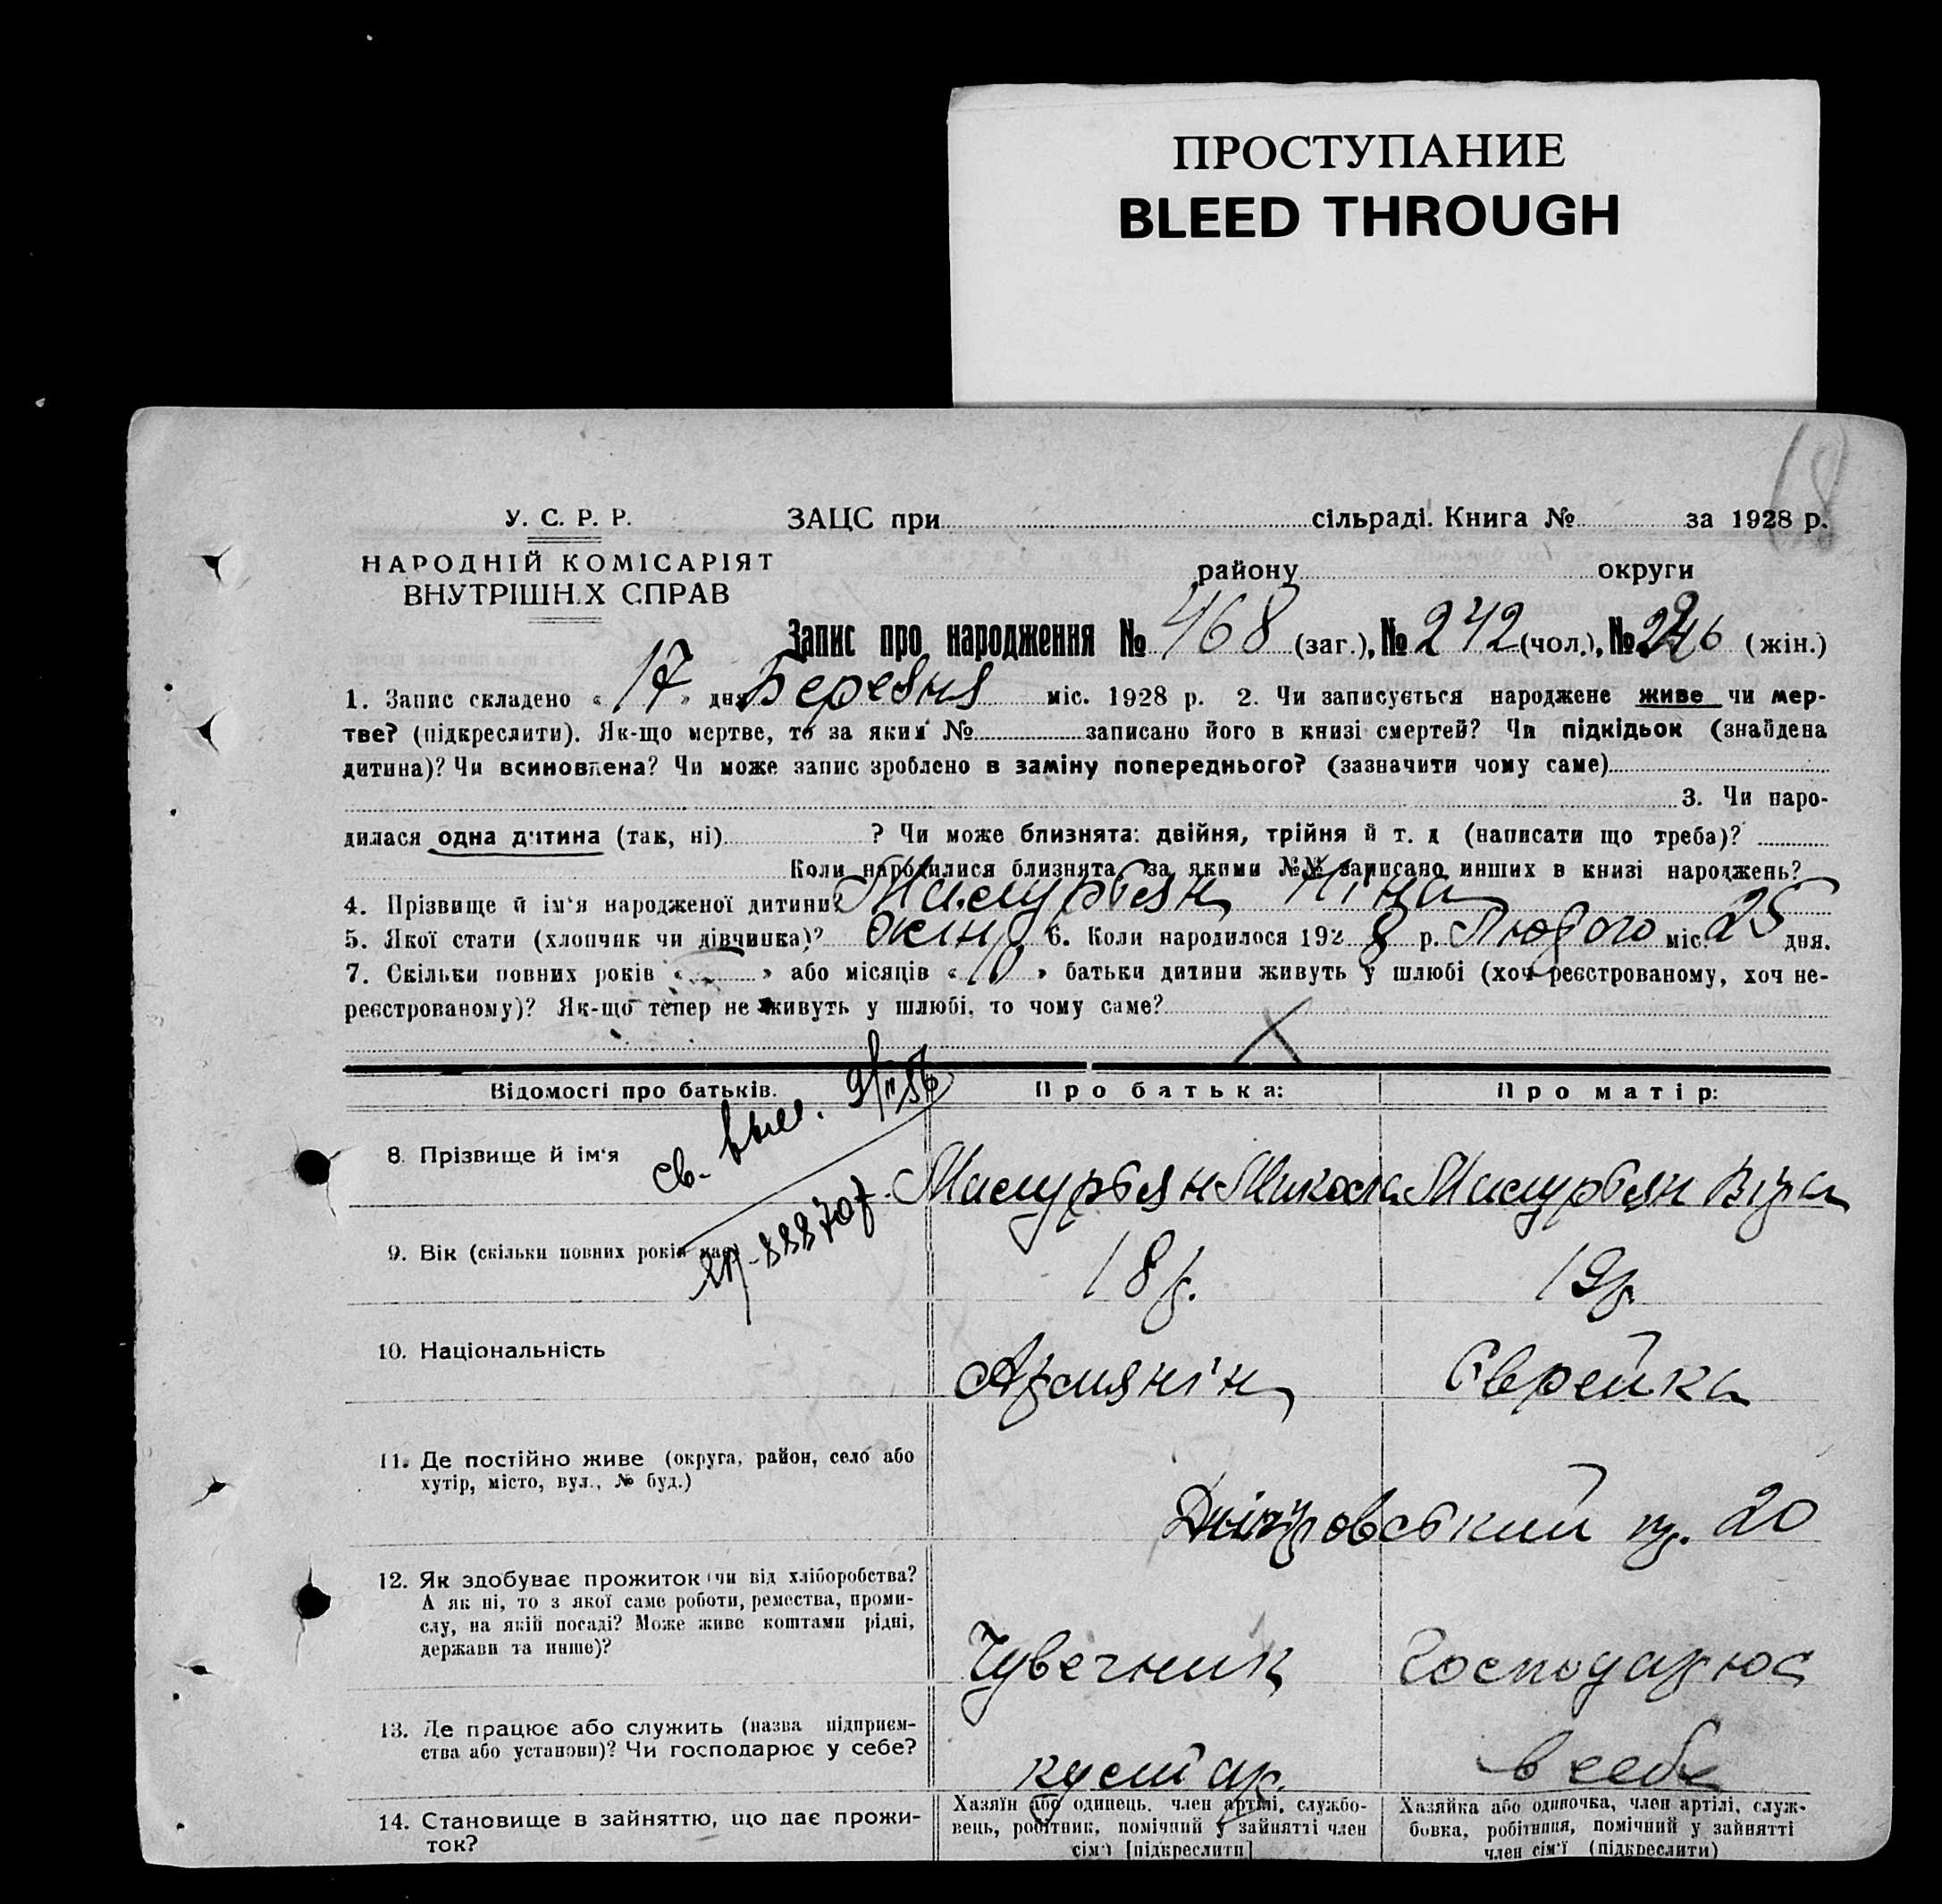 ПРОСТУПАНИЕ
BLEED THROUGH
68
У. С. Р. Р.
ЗАЦС при сільраді. Книга № за 1928 р.
НАРОДНІЙ КОМІСАРІЯТ
ВНУТРІШН.Х СПРАВ
району округи
Запис про народження № 468 (заг.), № 242 (чол.), № 226 (жін.)
1. Запис складено « 17 » дня Березня міс. 1928 р. 2. Чи записується народжене живе чи мер-
тве? (підкреслити). Як-що мертве, то за яким № записано його в книзі смертей? Чи підкідьок (знайдена
дитина)? Чи всиновлена? Чи може запис зроблено в заміну попереднього? (зазначити чому саме)
3. Чи наро-
дилася одна дитина (так, ні) ? Чи може близнята: двійня, трійня й т. д (написати що треба)?
Коли народилися близнята, за якими №№ записано инших в книзі народжень?
4. Прізвище й ім'я народженої дитини? Масурьян Ніна
5. Якої стати (хлопчик чи дівчинка)? жін 6. Коли народилося 1928 р. Лютого міс. 25 дня.
7. Скільки повних років « » або місяців « 10 » батьки дитини живуть у шлюбі (хоч реєстрованому, хоч не-
реєстрованому)? Як-що тепер не живуть у шлюбі, то чому саме?
Відомості про батьків. Про батька: Про матір:
св. выс. 9/II 56
ЯП-888707
8. Прізвище й ім'я Масурьян Микола Масурьян Віра
9. Вік (скільки повних років має) 18 р. 19 р.
10. Національність Армянін Єврейка
11. Де постійно живе (округа, район, село або
хутір, місто, вул., № буд.)
Дніпровський пр. 20
12. Як здобуває прожиток (чи від хліборобства?
А як ні, то з якої саме роботи, ремества, проми-
слу, на якій посаді? Може живе коштами рідні,
держави та инше)?
Чувечник Господарює
13. Де працює або служить (назва підприєм-
ства або установи)? Чи господарює у себе?
кустар. в себе
14. Становище в зайняттю, що дає прожи-
ток?
Хазяїн або одинець, член артілі, службо-
вець, робітник, помічний у зайнятті член
сім'ї [підкреслити]
Хазяйка або одиночка, член артілі, служ-
бовка, робітниця, помічний у зайнятті
член сім'ї (підкреслити)